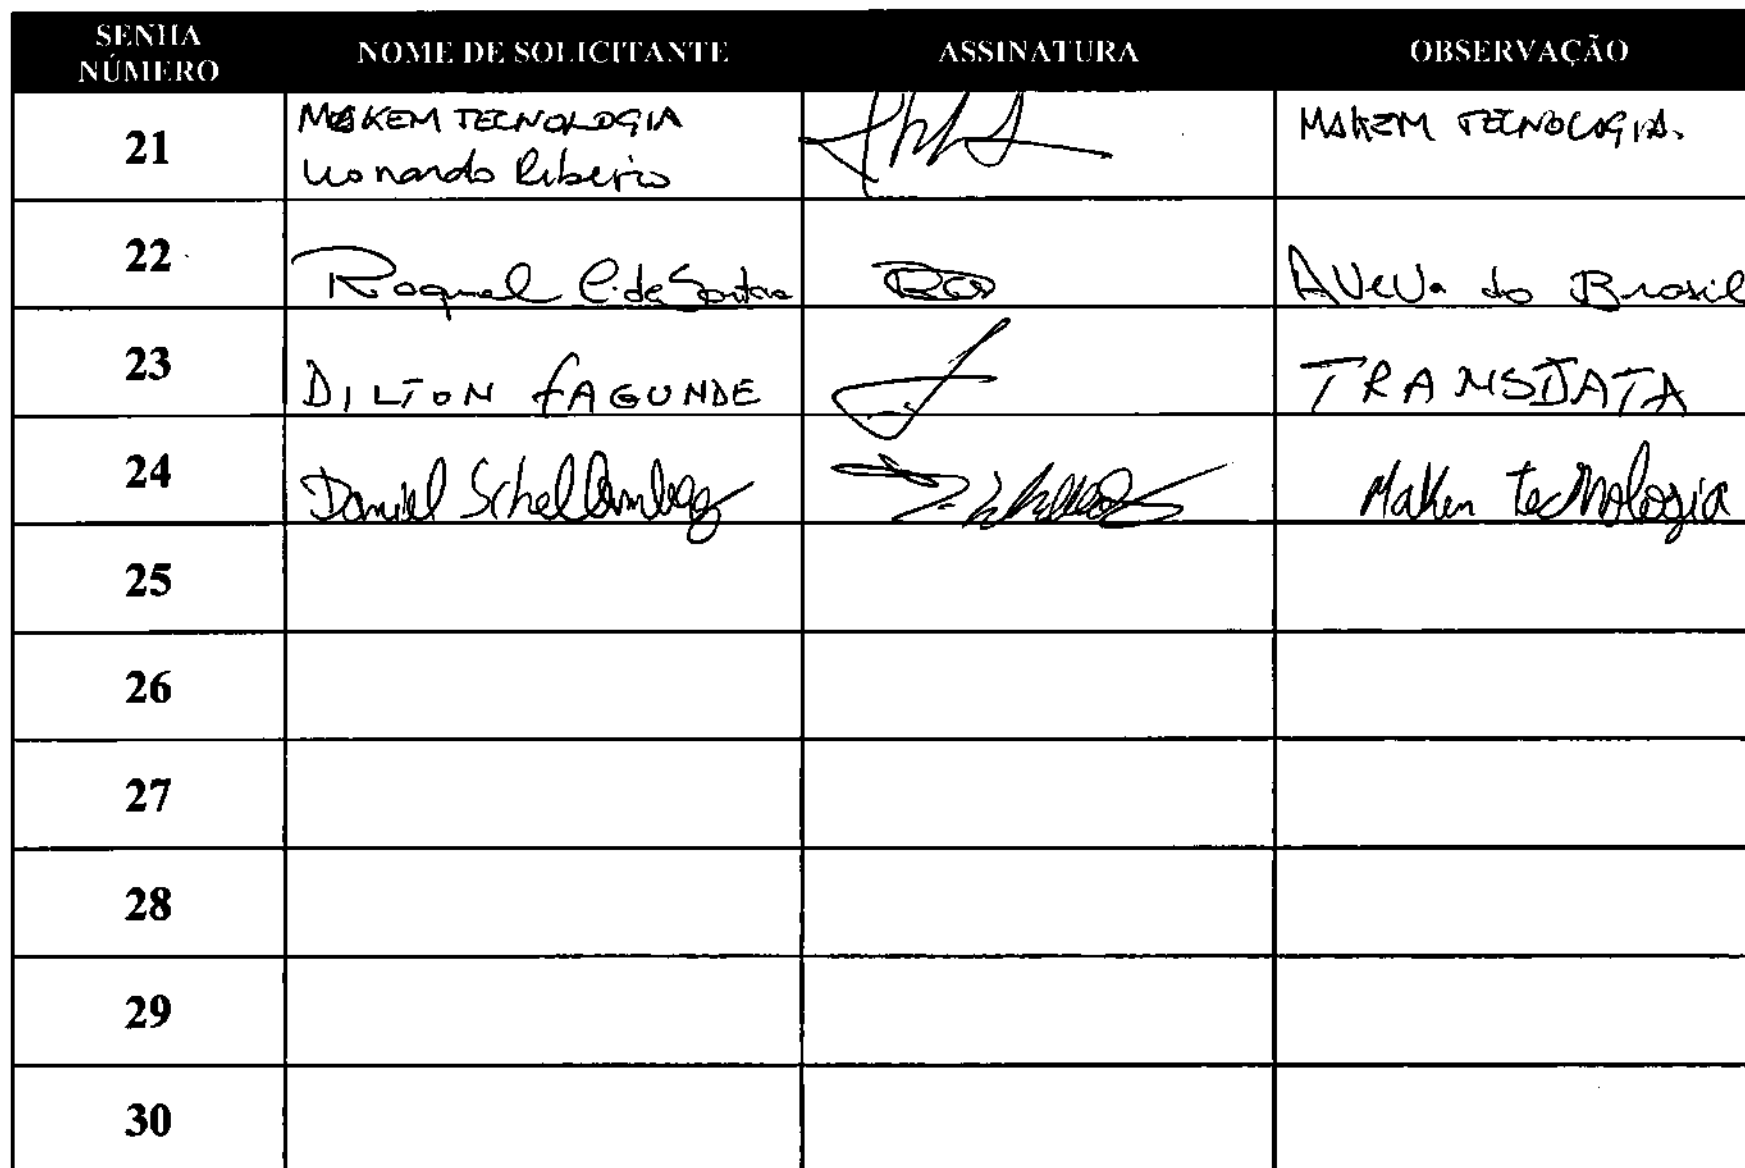 SENHA NÚMERO NOME DE SOLICITANTE ASSINATURA OBSERVAÇÃO
21 MAKEM TECNOLOGIA MAKEM TECNOLOGIA.
Leonardo Ribeiro
22 Raquel C. de Santana AVeVa do Brasil
23 DILTON FAGUNDE TRANSDATA
24 Daniel Schellemberg Maken tecnologia
25
26
27
28
29
30